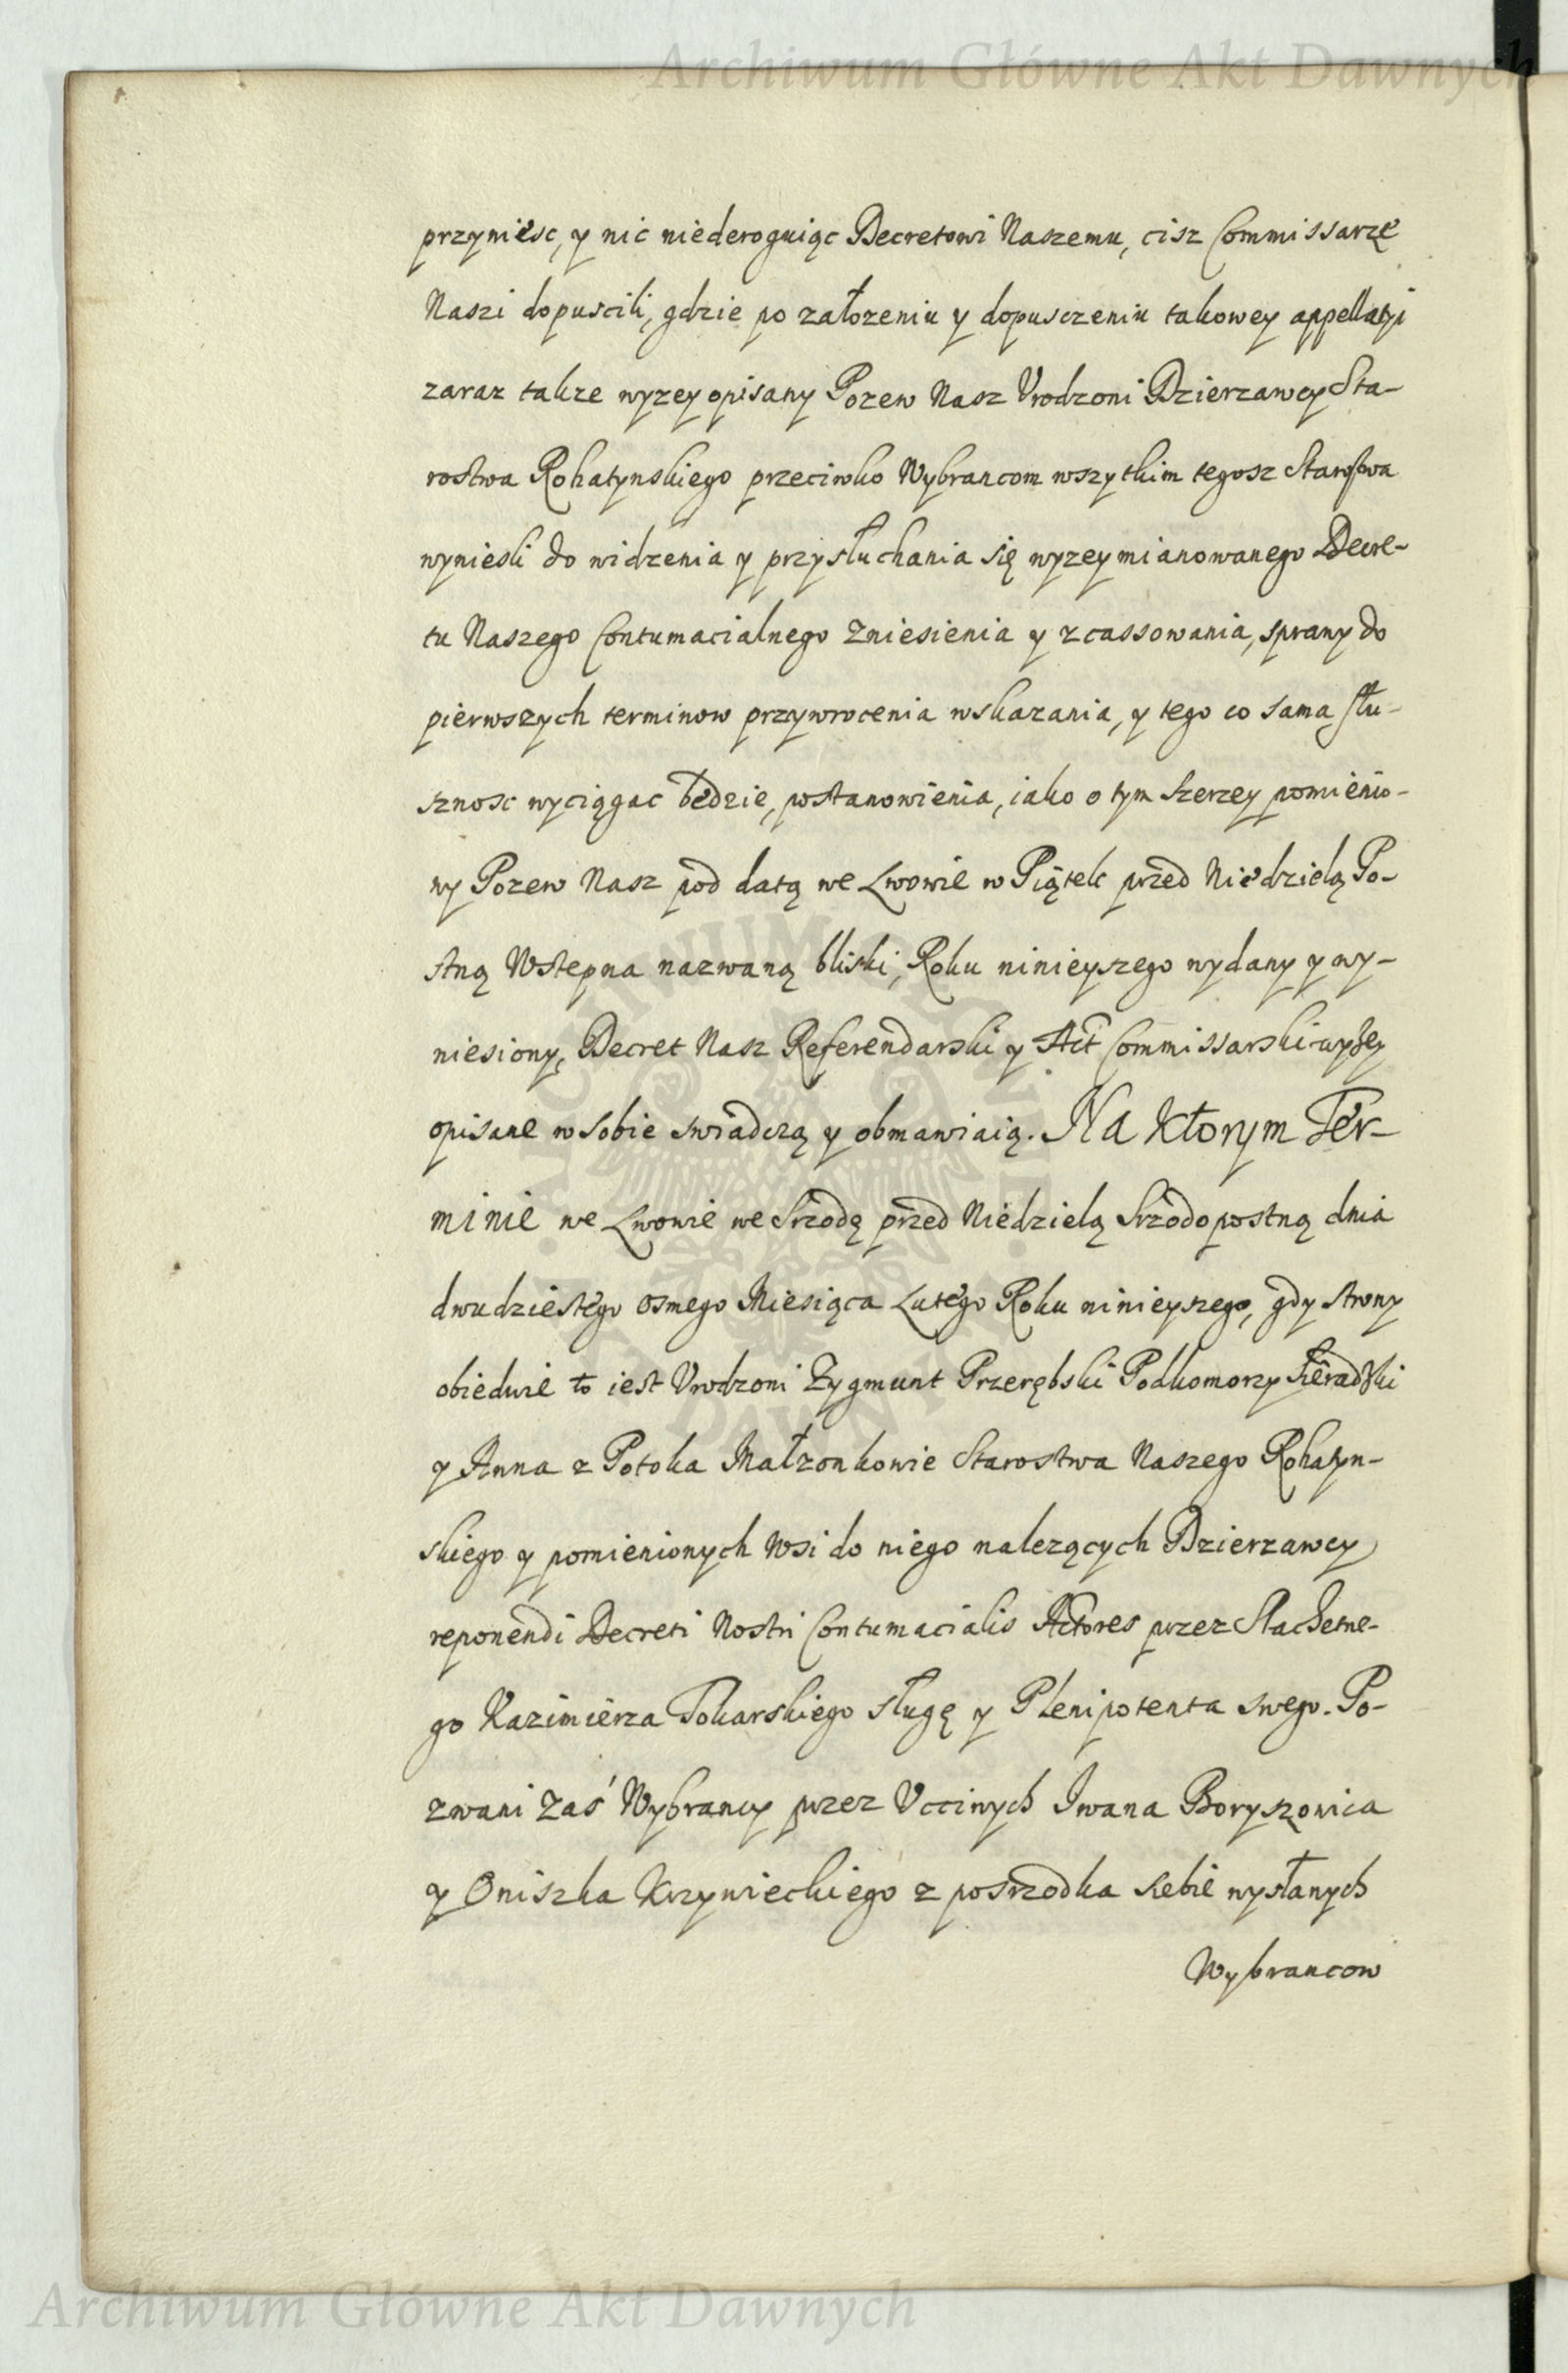 Archiwum Główne Akt Dawnych
przyniesc, y nic niederoguiąc Decretowi Naszemu, cisz Commissarze
Naszi dopuscili, gdzie po załozeniu y dopusczeniu takowey appellatji
zaraz takze wyzey opisany Pozew Nasz Vrodzoni Dzierzawcy Sta-
rostwa Rohatynskiego przeciwko Wybrancom wszytkim tegosz Starostwa
wyniesli do widzenia y przysłuchania się wyzey mianowanego Decre-
tu Naszego Contumacialnego Zniesienia y zcassowania, sprawy do
pierwszych terminow przywrocenia wskazania, y tego co sama słu-
sznosc wyciągac będzie, postanowienia, iako o tym szerzey pomienio-
ny Pozew Nasz pod datą we Lwowie w Piątek przed Niedzielą Po-
stną Wstepna nazwaną bliski, Roku ninieyszego wydany y wy-
niesiony, Decret Nasz Referendarski y Act Commissarski wyszey
opisane w sobie swiadczą y obmawiaią. Na ktorym Ter-
minie we Lwowie we Srzodę przed Niedzielą Srzodopostną dnia
dwudziestego osmego Miesiąca Lutego Roku ninieyszego, gdy strony
obiedwie to iest Vrodzoni Zygmunt Przerębski Podkomorzy Sieradzki
y Anna z Potoka Małzonkowie Starostwa Naszego Rohatyn-
skiego y pomienionych Wsi do niego nalezących Dzierzawcy
reponendi Decreti Nostri Contumacialis Actores przez Slachetne-
go Kazimierza Tokarskiego sługę y Plenipotenta swego. Po-
zwani zaś Wybrancy przez Vcciwych Iwana Boryszowica
y Oniszka Krzywieckiego z posrzodka siebie wysłanych
Wybrancow
Archiwum Główne Akt Dawnych